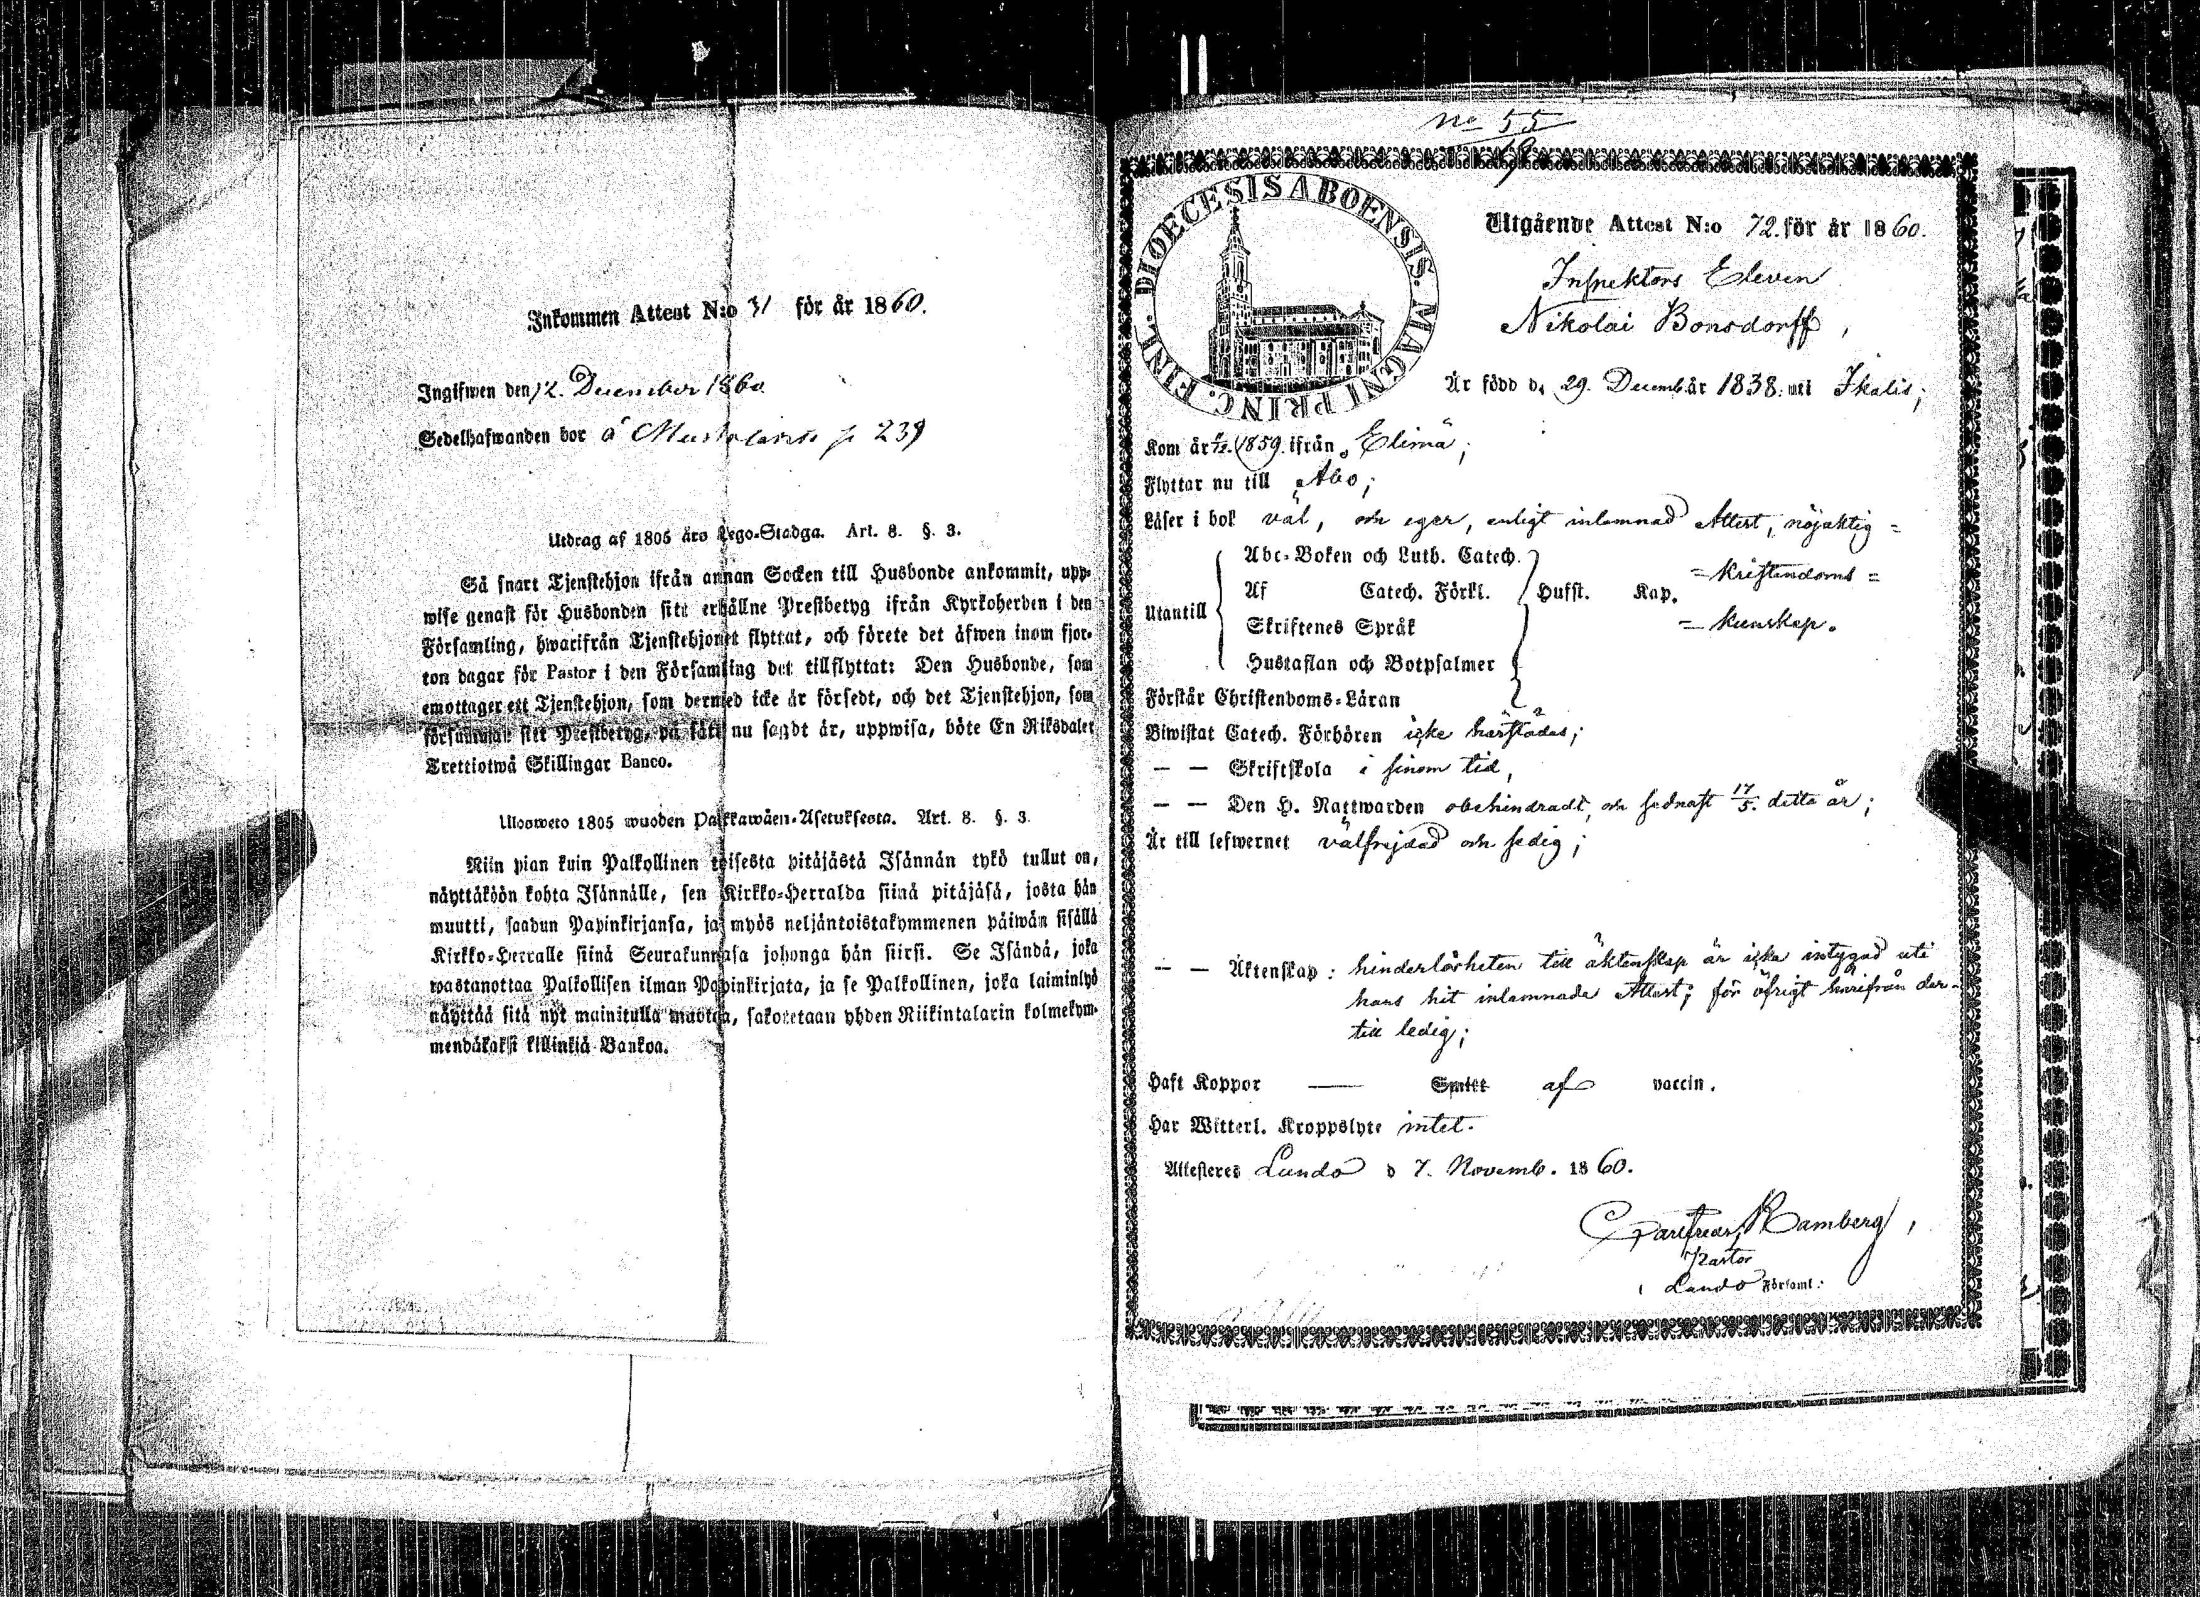 Inkommen Attest N:o 31 för år 1860.
Ingifwen den 12. December 1860.
Sedelhafwanden bor å p 239
Utdrag af 1805 års Lego-Stadga. Art. 8. §. 3.
Så snart Tjenstehjon ifrån annan Socken till Husbonde ankommit, upp-
wise genast för Husbonden sitt erhållne Prestbetyg ifrån Kyrkoherden i den
Församling, hwarifrån Tjenstehjonet flyttat, och förete det äfwen inom fjor-
ton dagar för Pastor i den Församling det tillflyttat: Den Husbonde, som
emottager ett Tjenstehjon, som dermed icke är försedt, och det Tjenstehjon, som
försummar sitt Prestbetyg, på sätt nu sagdt är, uppwisa, böte En Riksdaler
Trettiotwå Skillingar Banco.
Ulosweto 1805 wuoden Palkkawäen-Asetuksesta. Art. 8. §. 3.
Niin pian kuin Palkollinen toisesta pitäjästä Isännän tykö tullut on,
näyttäköön kohta Isännälle, sen Kirkko-Herralda siinä pitäjäsä, josta hän
muutti, saadun Papinkirjansa, ja myös neljäntoistakymmenen päiwän sisällä
Kirkko-Herralle siinä Seurakunnasa johonga hän siirsi. Se Isändä, joka
wastanottaa Palkollisen ilman Papinkirjata, ja se Palkollinen, joka laiminlyö
näyttää sitä nyt mainitulla muoton, sakotetaan yhden Riikintalarin kolmekym-
mendäkaksi killinkiä Bankoa.
No 55
DIOECESIS ABOENSIS. MAGNI PRINC. FINL.
Utgående Attest N:o 72. för år 1860.
Inspektors Eleven
Nikolai Bonsdorff,
Är född d. 29. Decemb. år 1838. uti Ikalis;
Kom år 1859. ifrån Elimä;
Flyttar nu till Åbo;
Läser i bok väl, och eger, enligt inlemnad Attest, nöjaktig =
Abc-Boken och Luth. Catech. = Kristendoms =
Utantill Af Catech. Förkl. Hufst. Kap.
Skriftenes Språk = kunskap.
Hustaflan och Botpsalmer
Förstår Christendoms-Läran
Biwistat Catech. Förhören icke härstädes;
— — Skriftskola i sinom tid,
— — Den H. Nattwarden obehindradt, och sednast 17/5. detta år;
Är till lefwernet välfrejdad och sedig;
— — Äktenskap: hinderlösheten till äktenskap är icke intygad uti
hans hit inlemnade Attest; för öfrigt härifrån der-
till ledig;
Haft Koppor — Smitt af vaccin.
Har Witterl. Kroppslyte intet.
Attesteres Lundo d 7. Novemb. 1860.
Ramberg,
Pastor
i Lundo Församl: